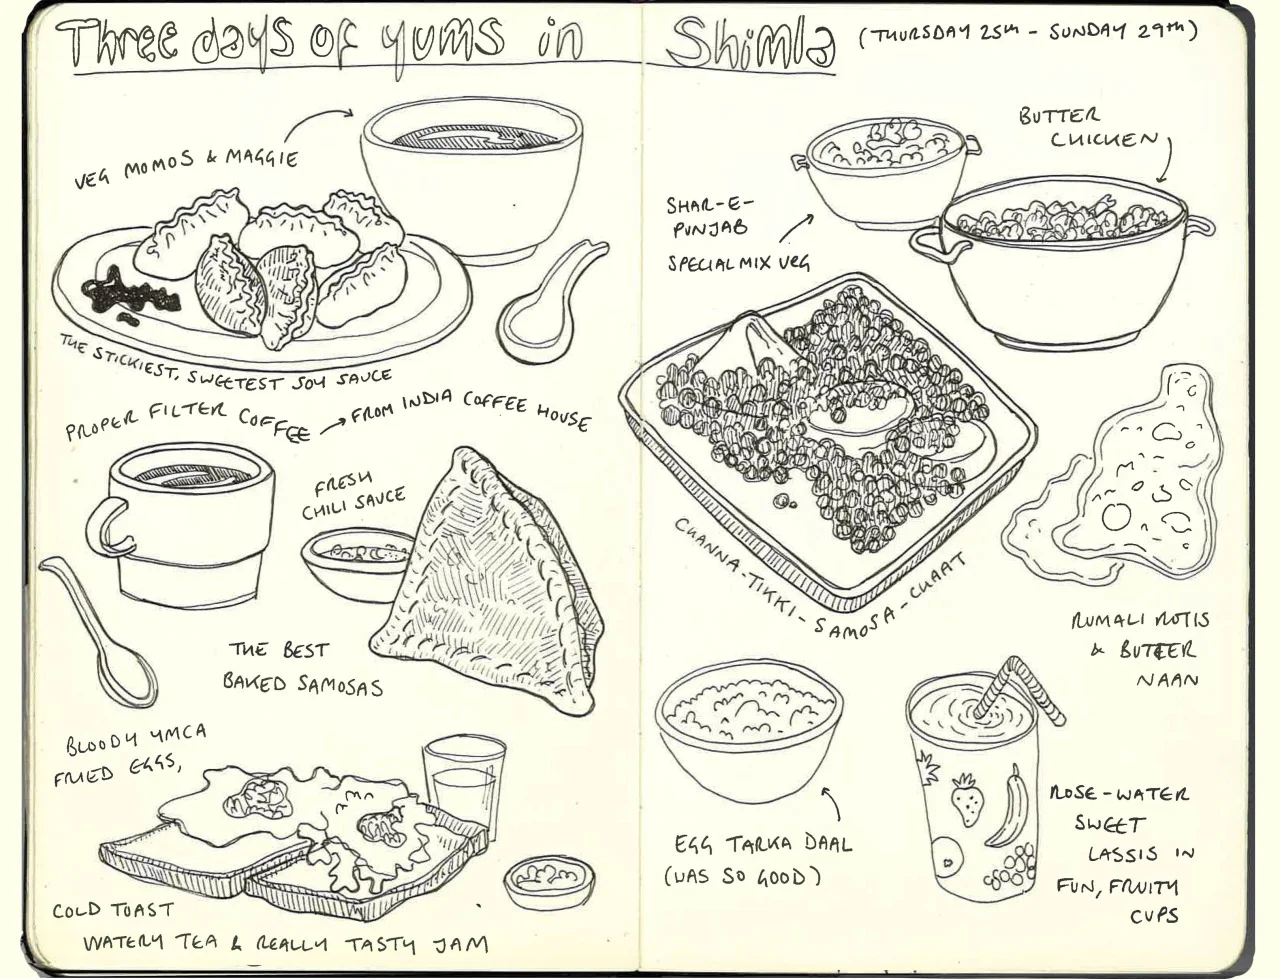 Three days of yums in Shimla (THURSDAY 25th - SUNDAY 29th)
VEG MOMOS & MAGGIE
THE STICKIEST, SWEETEST SOY SAUCE
PROPER FILTER COFFEE → FROM INDIA COFFEE HOUSE
FRESH
CHILI SAUCE
THE BEST
BAKED SAMOSAS
BLOODY YMCA
FRIED EGGS,
COLD TOAST
WATERY TEA & REALLY TASTY JAM
BUTTER
CHICKEN
SHAR-E-
PUNJAB
SPECIAL MIX VEG
CHANNA-TIKKI-SAMOSA-CHAAT
RUMALI ROTIS
& BUTTER
NAAN
EGG TARKA DAAL
(WAS SO GOOD)
ROSE-WATER
SWEET
LASSIS IN
FUN, FRUITY
CUPS